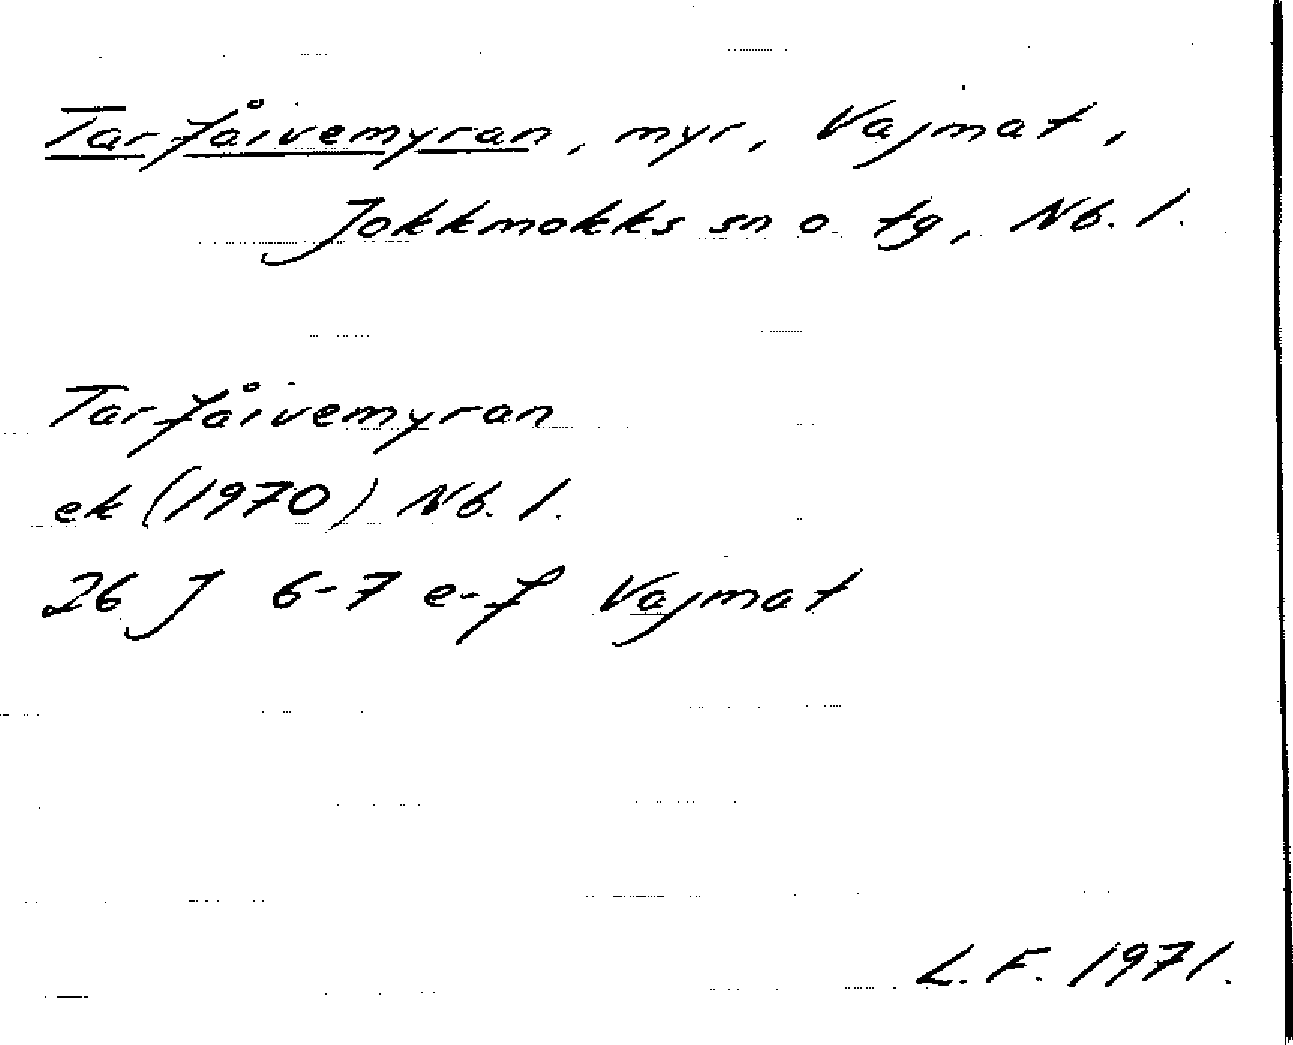 Tarfåivemyran, myr, Vajmat,
Jokkmokks sn o tg, Nb. l.
Tarfåivemyran
ek (1970) Nb. l.
26 J 6-7 e-f Vajmat
L. F. 1971.